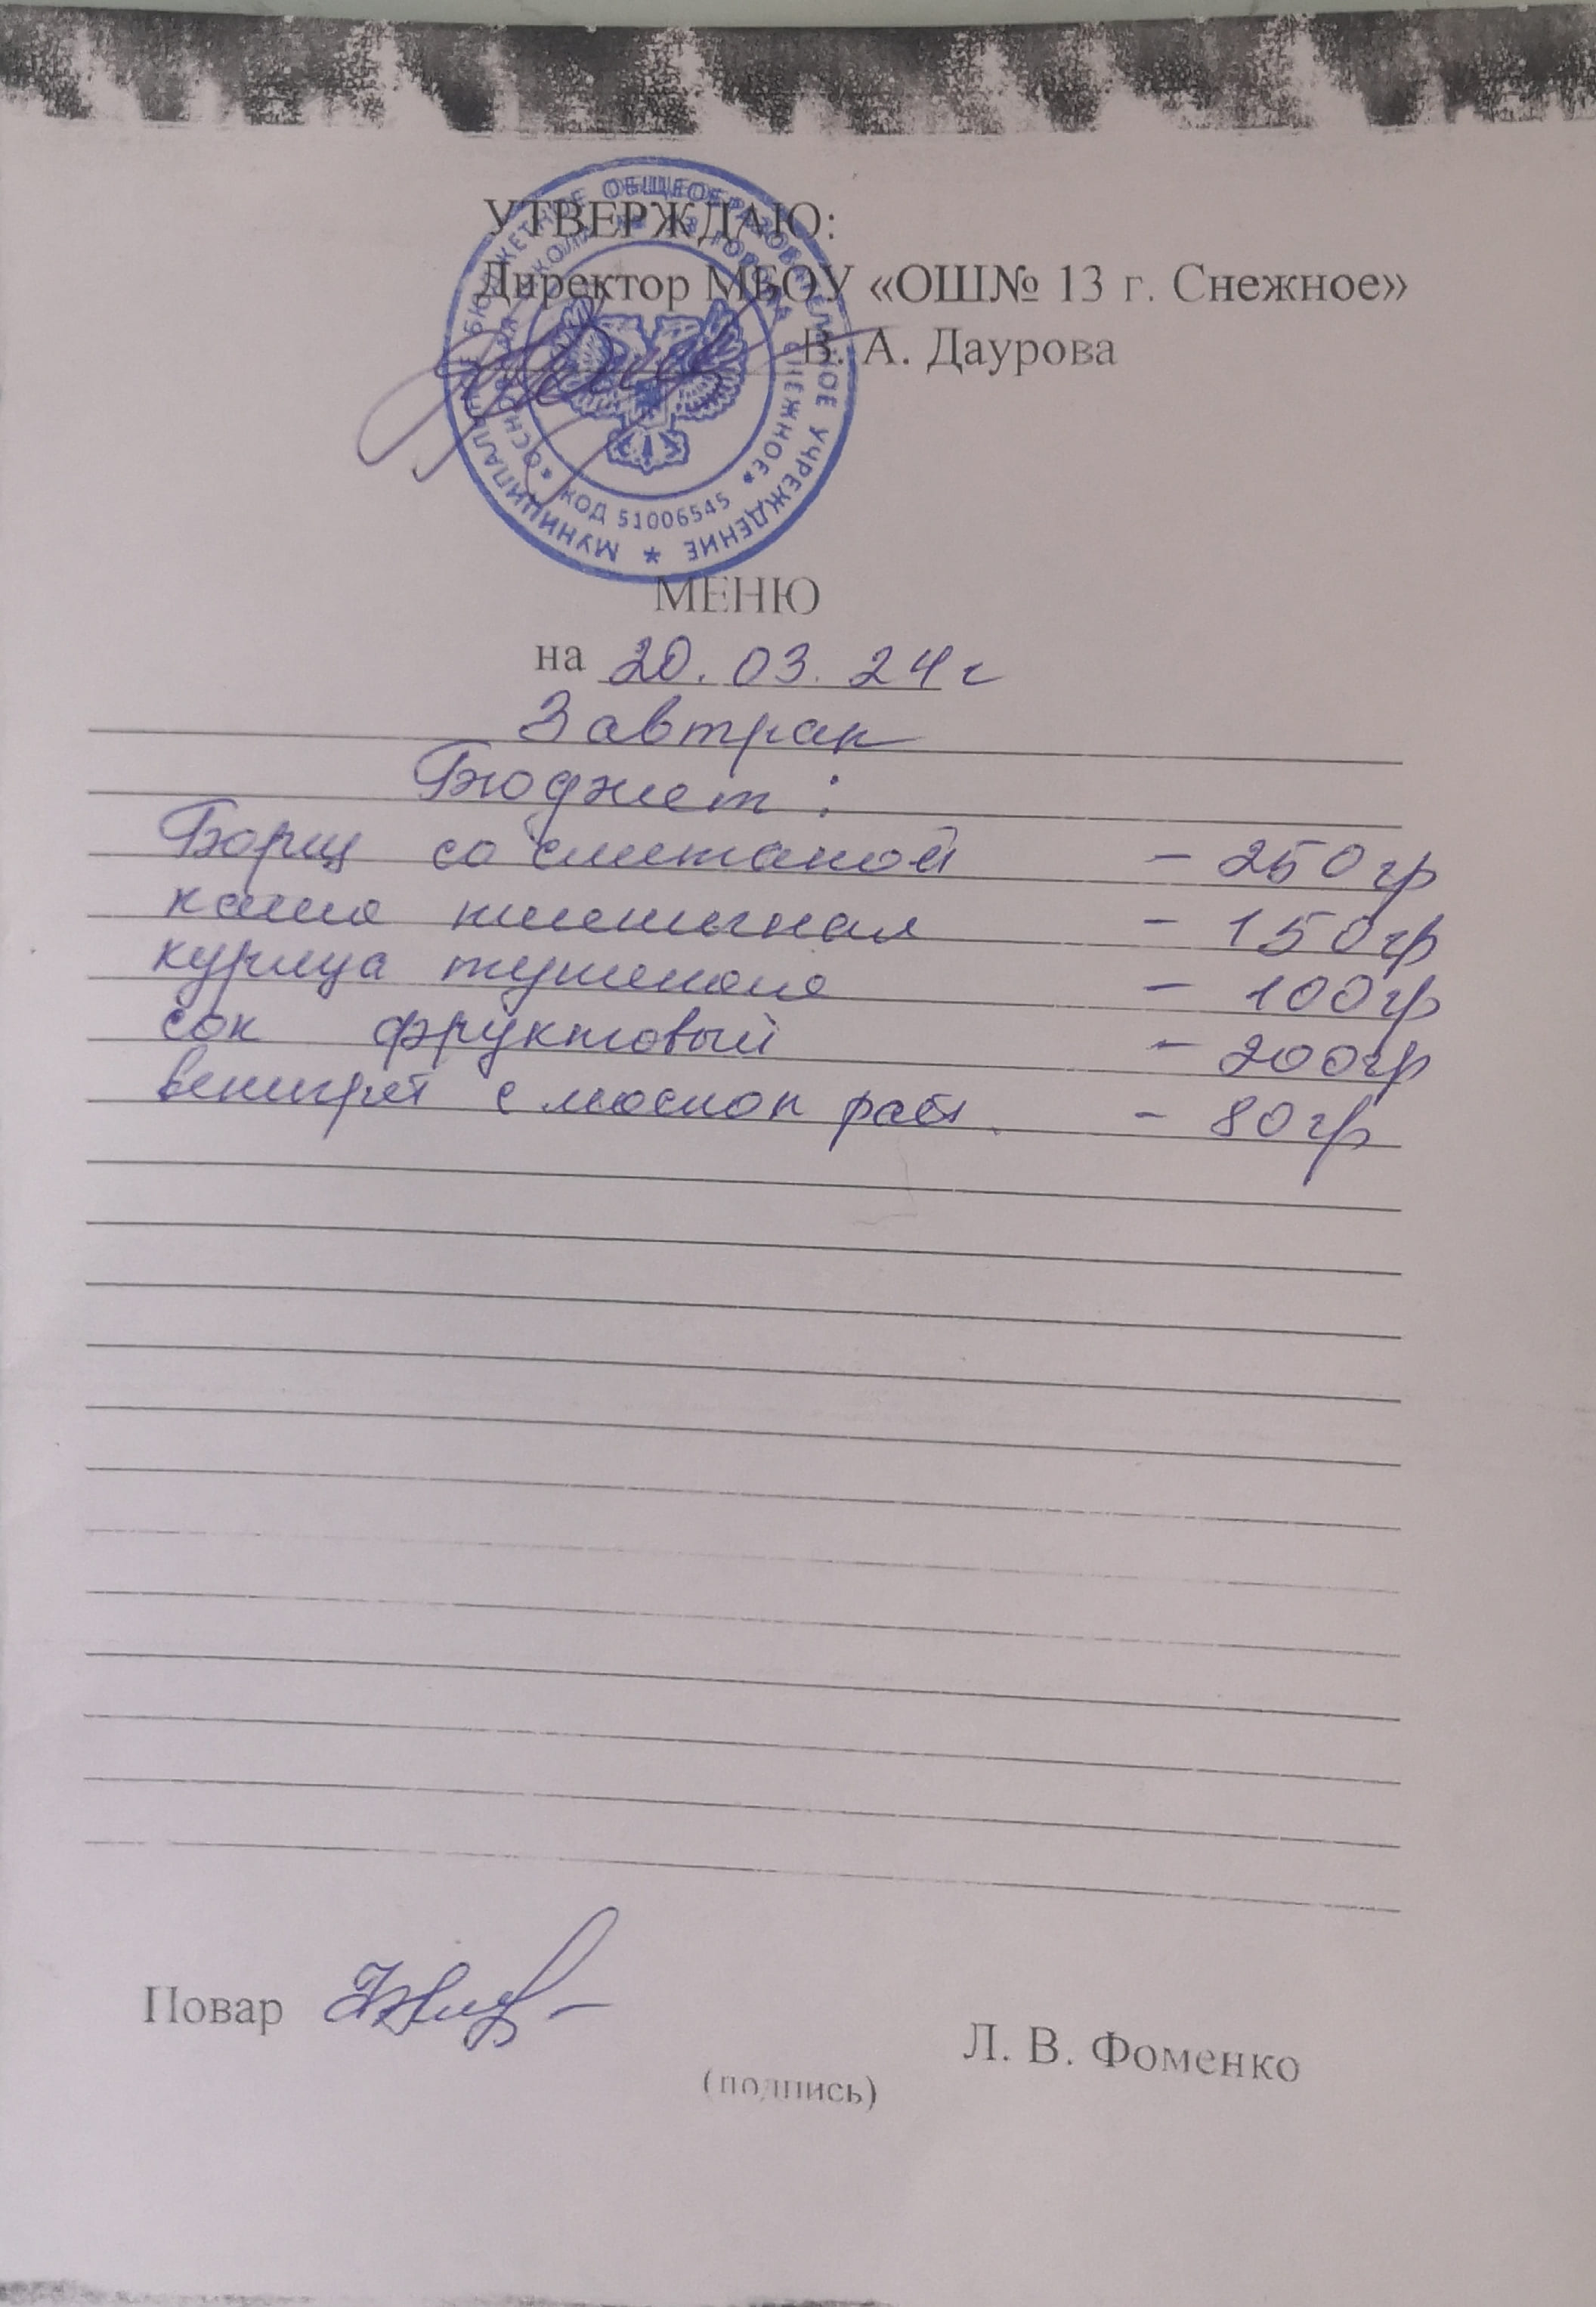 УТВЕРЖДАЮ:
Директор МБОУ «ОШ№ 13 г. Снежное»
В. А. Даурова
МУНИЦИПАЛЬНОЕ БЮДЖЕТНОЕ ОБЩЕОБРАЗОВАТЕЛЬНОЕ УЧРЕЖДЕНИЕ
КОД 51006545
МЕНЮ
на 20.03.24г
Завтрак
Бюджет:
Борщ со сметаной - 250гр
каша пшеничная - 150гр
курица тушеная - 100гр
сок фруктовый - 200гр
венигрет с маслом раст. - 80гр
Повар
Л. В. Фоменко
(подпись)